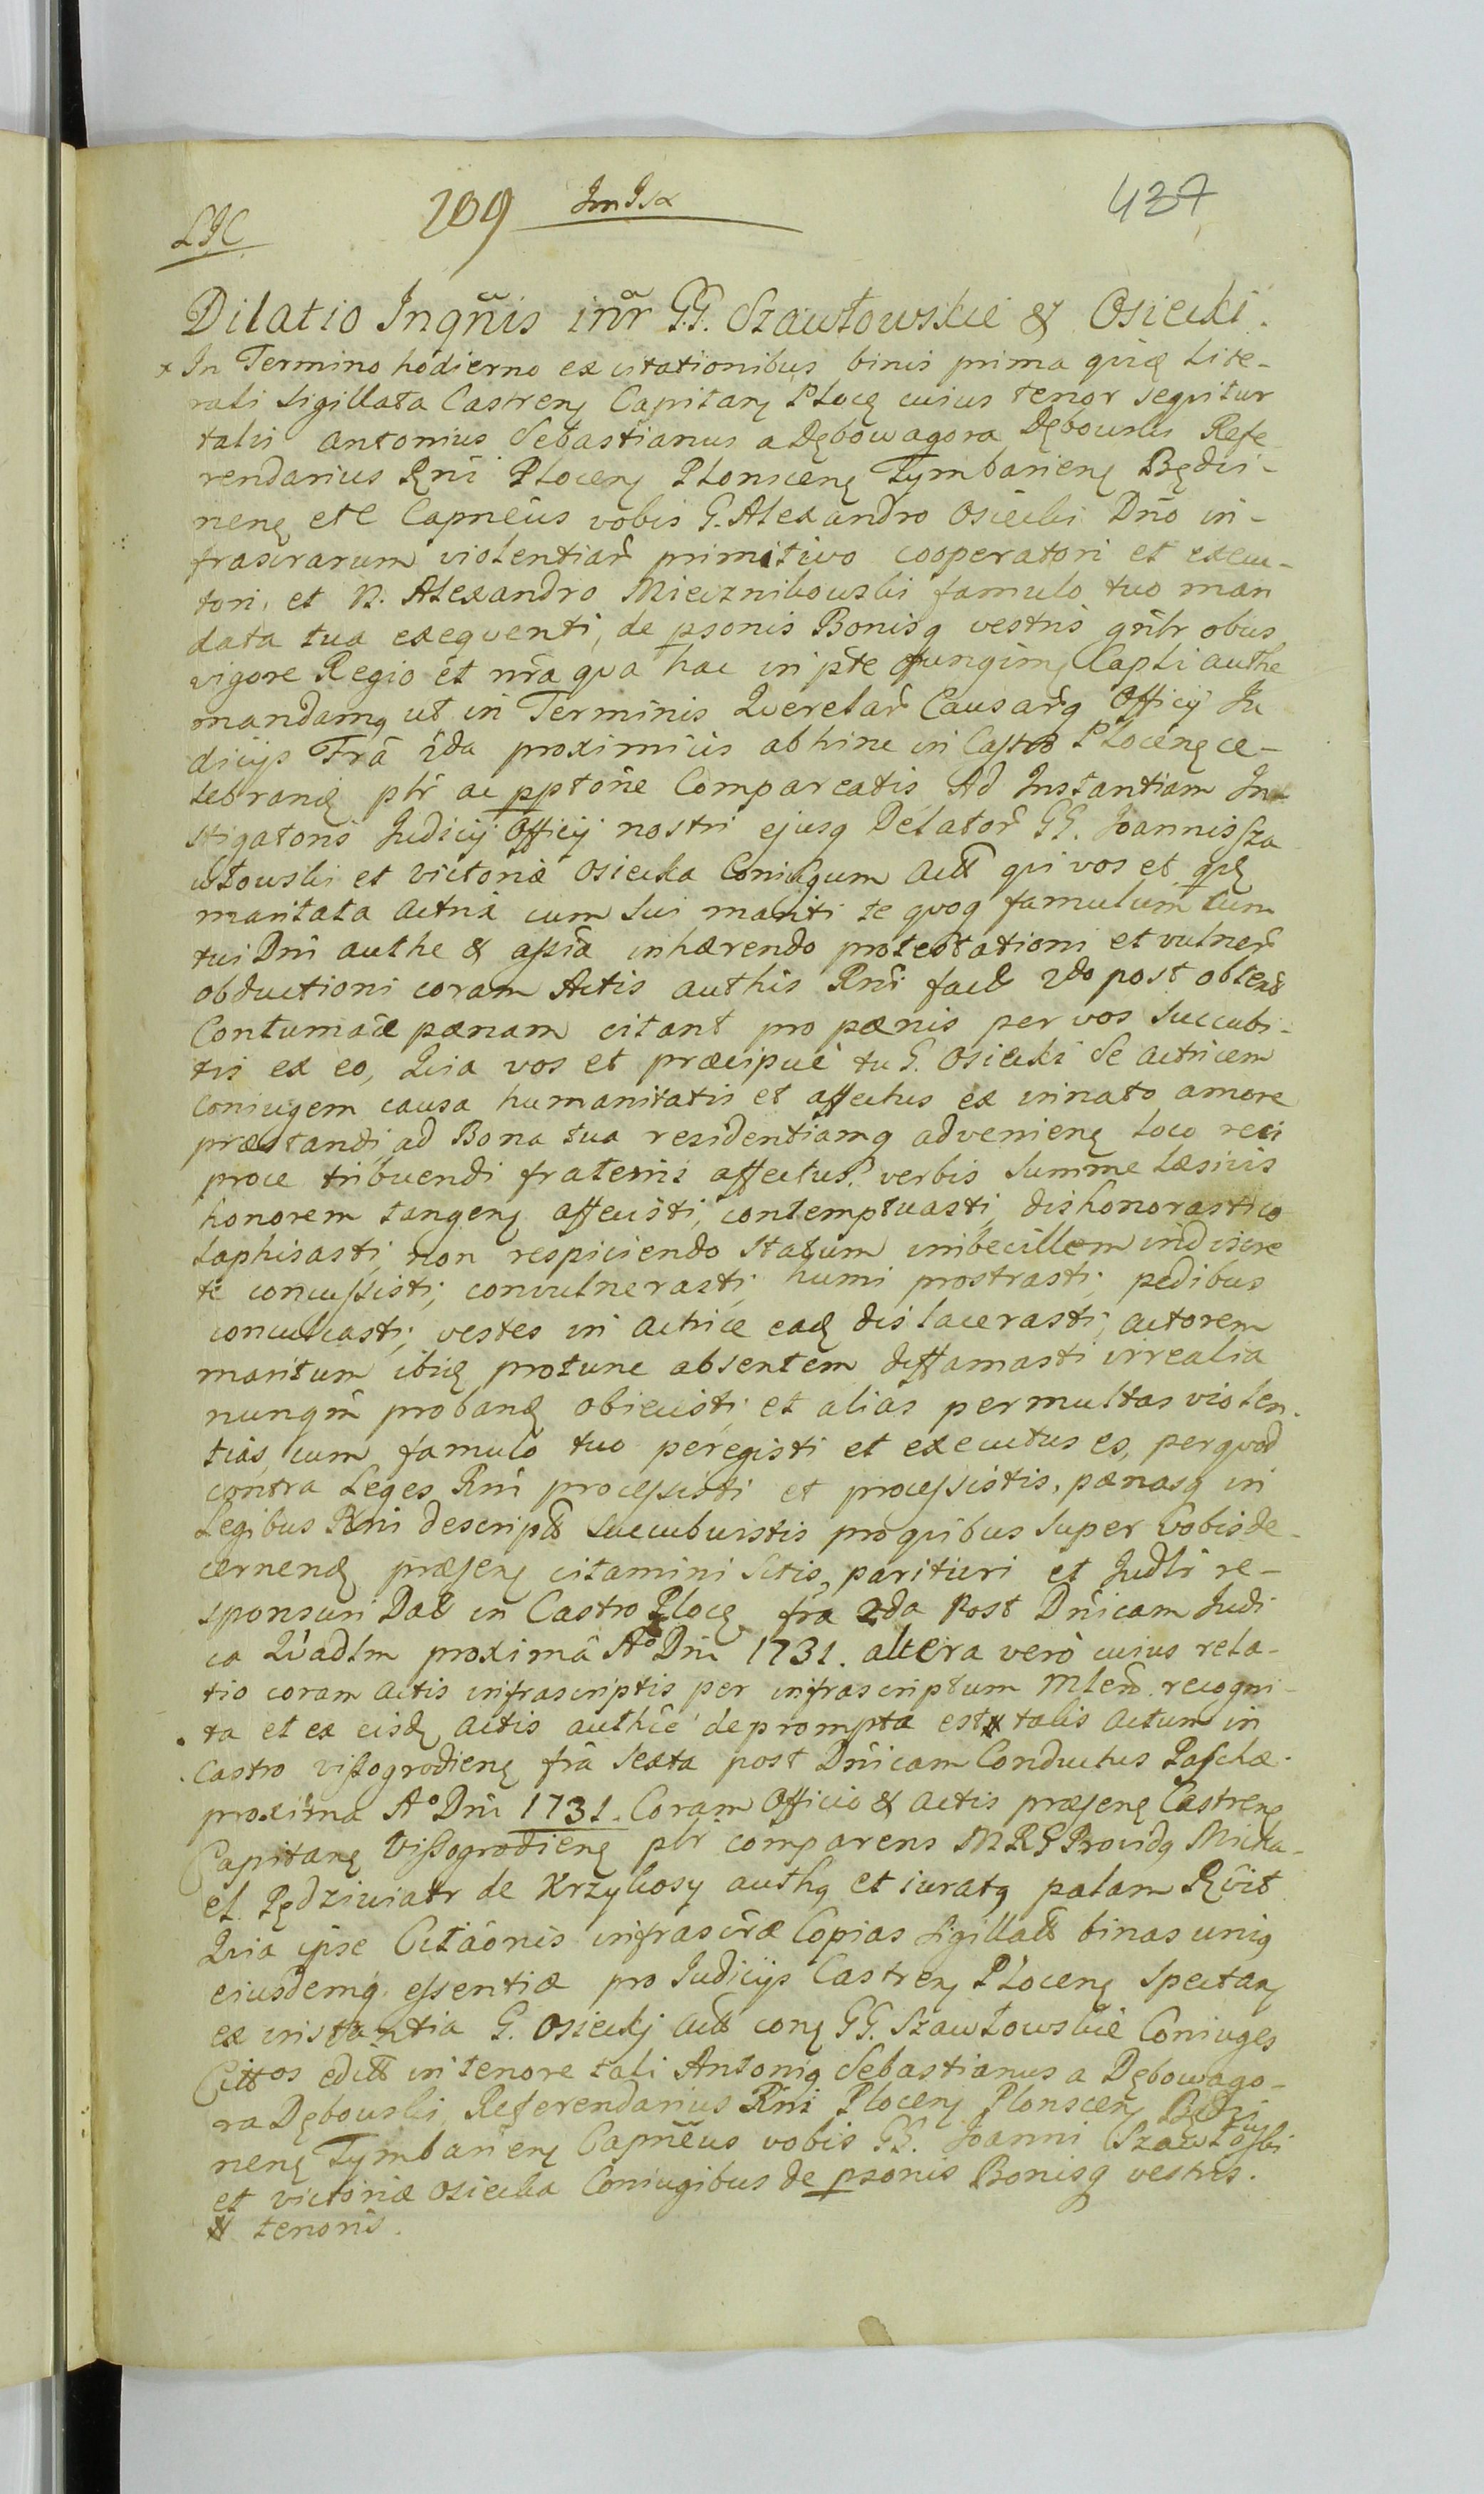 209 437
LJC
Dilatio Inqnis inr GG. Szawłowskie & Osiecki.
x In Termino hodierno ex citationibus binis prima quidę Lite-
rali Sigillata Castrenę Capitanę Plocę cuius tenor sequitur
talis Antonius Sebastianus a Dębowagora Dębowski Refe
rendarius Rni Plocenę Plonscenę Tymbarienę Będzi-
nenę etc Capneus vobis G. Alexandro Osiecki Dno in-
frascrarum violentiar primitivo cooperatori et execu-
tori, et N. Alexandro Miecznikowski famulo tuo man
data tua exequenti, de psonis Bonisq vestris gnlr obus
vigore Regio et nra qua hac in pte fungimę Capli authe
mandamę ut in Terminis Querelar Causarq Officy Ju
dicijs Fra 2da proximius abhinc in Castro Plocenę ce-
lebrandę plr ac pptorie Compareatis Ad Instantiam In-
stigatoris Judicij Officij nostri ejusq Delator GG. Joannis Sza
włowski et Victoria Osiecka Coniugum Actt qui vos et qdę
maritata actrix cum sui mariti te quoq famulum cum
tui Dni authe & assia inhærendo protestationi et vulner
obductioni coram Actis authis Rni fact 2do post obtent
Contumaciæ pænam citant pro pænis per vos succubi-
tis ex eo, Quia vos et præcipuè tu G. Osiecki se Actricem
Coniugem causa humanitatis et affectus ex innato amore
præstandi ad Bona tua residentiamq advenienę loco reci
proce tribuendi fraterni affectus. verbis summe læsivis
honorem tangenę affecisti, contemptuasti, dishonorasti co
laphisasti, non respiciendo statum imbecillem indiscre
te concussisti, convulnerasti, humi prostrasti, pedibus
conculcasti, vestes in actrice eadę dislacerasti, actorem
maritum ibidę protunc absentem deffamasti irrealia
nunqm probandę obiecisti, et alias permultas violen-
tias cum famulo tuo peregisti et executus es, per quod
contra Leges Rni processisti et processistis, pænasq in
Legibus Rni descript succubuistis pro quibus super vobis de-
cernendę præsenę citamini sitis, parituri et Judlr re-
sponsuri Dat in Castro Plocę fra 2da Post Dnicam Judi
ca Quadlm proxima Ao Dni 1731. altera verò cuius rela-
tio coram actis infrascriptis per infrascriptum Mlem. recogni-
ta et ex eisdę actis authce deprompta est ※ talis Actum in
Castro vissogrodienę fra sexta post Dnicam Conductus Paschæ
proxima Ao Dni 1731. Coram Officio & Actis præsenę Castrenę
Capitanę Vissogrodienę plr comparens MRG Providę Micha-
el Pędziwiatr de Krzykosy authę et iuratę palam Rvit
Quia ipse Citaonis infrascræ Copias Sigillatt binas uniq
eiusdemq essentiæ pro Judicijs Castrenę Plocenę spectanę
ex instantia G. Osieckj Actt conę GG. Szawłowskie Coniuges
Cittos editt in tenore tali Antonię Sebastianus a Dębowago-
ra Dębowski, Referendarius Rni Plocenę Plonscenę Będzi
nenę Tymbarienę Capneus vobis GG. Joanni Szawłowski
et Victoriæ Osiecka Coniugibus de psonis Bonisq vestris.
※ tenoris.